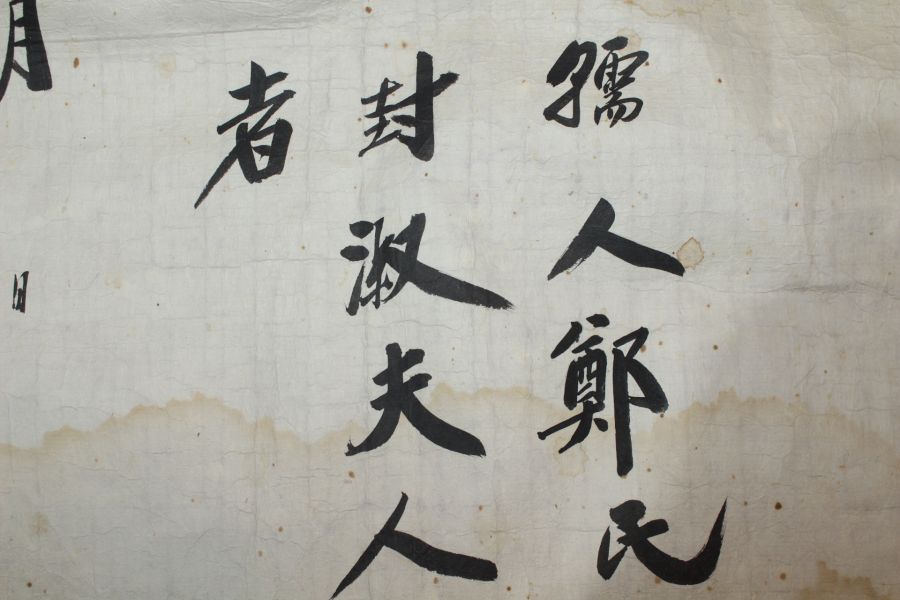 孺人鄭氏
封淑夫人
者
月
日